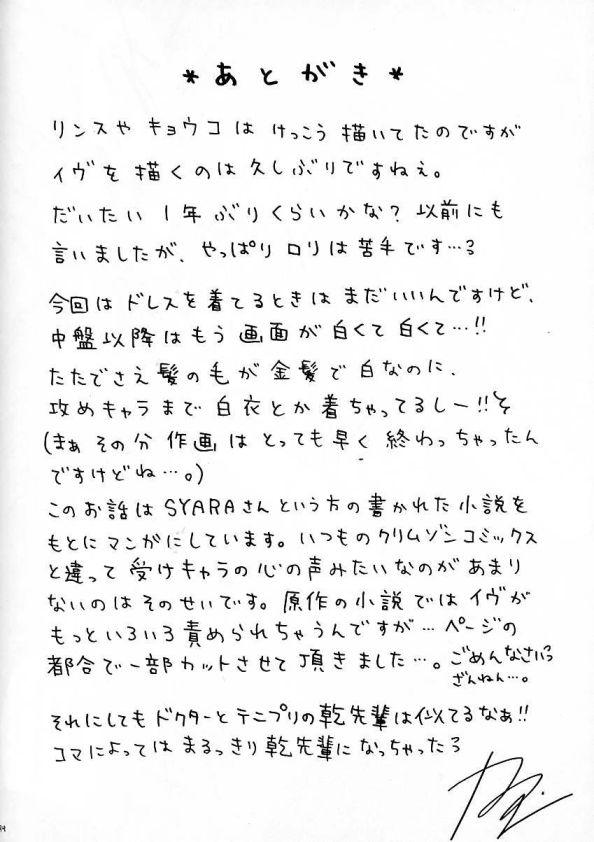 *あとがき*
リンスや キョウコは けっこう 描いてたのですが
イヴを 描くのは 久しぶりですねぇ。
だいたい 1年 ぶりくらいかな? 以前にも
言いましたが、やっぱり ロリは 苦手です…。
今回は ドレスを 着てるときは まだいいんですけど、
中盤以降はもう 画面が 白くて 白くて…!!
たたでさえ 髪の毛が 金髪で 白なのに、
攻めキャラまで 白衣とか 着ちゃってるしー!!
(まぁ その分 作画は とっても 早く 終わっちゃったん
ですけどね…。)
このお話は SYARAさん という方の 書かれた 小説を
もとに マンガにしています。いつもの クリムゾンコミックス
と違って 受けキャラの 心の声みたいなのが あまり
ないのは そのせいです。原作の小説では イヴが
もっといろいろ 責められちゃうんですが… ページの
都合で一部カットさせて 頂きました…。ごめんなさいっ
ざんねん…。
それにしても ドクターと テニプリの 乾先輩は 似てるなぁ!!
コマによっては まるっきり 乾先輩に なっちゃったろ